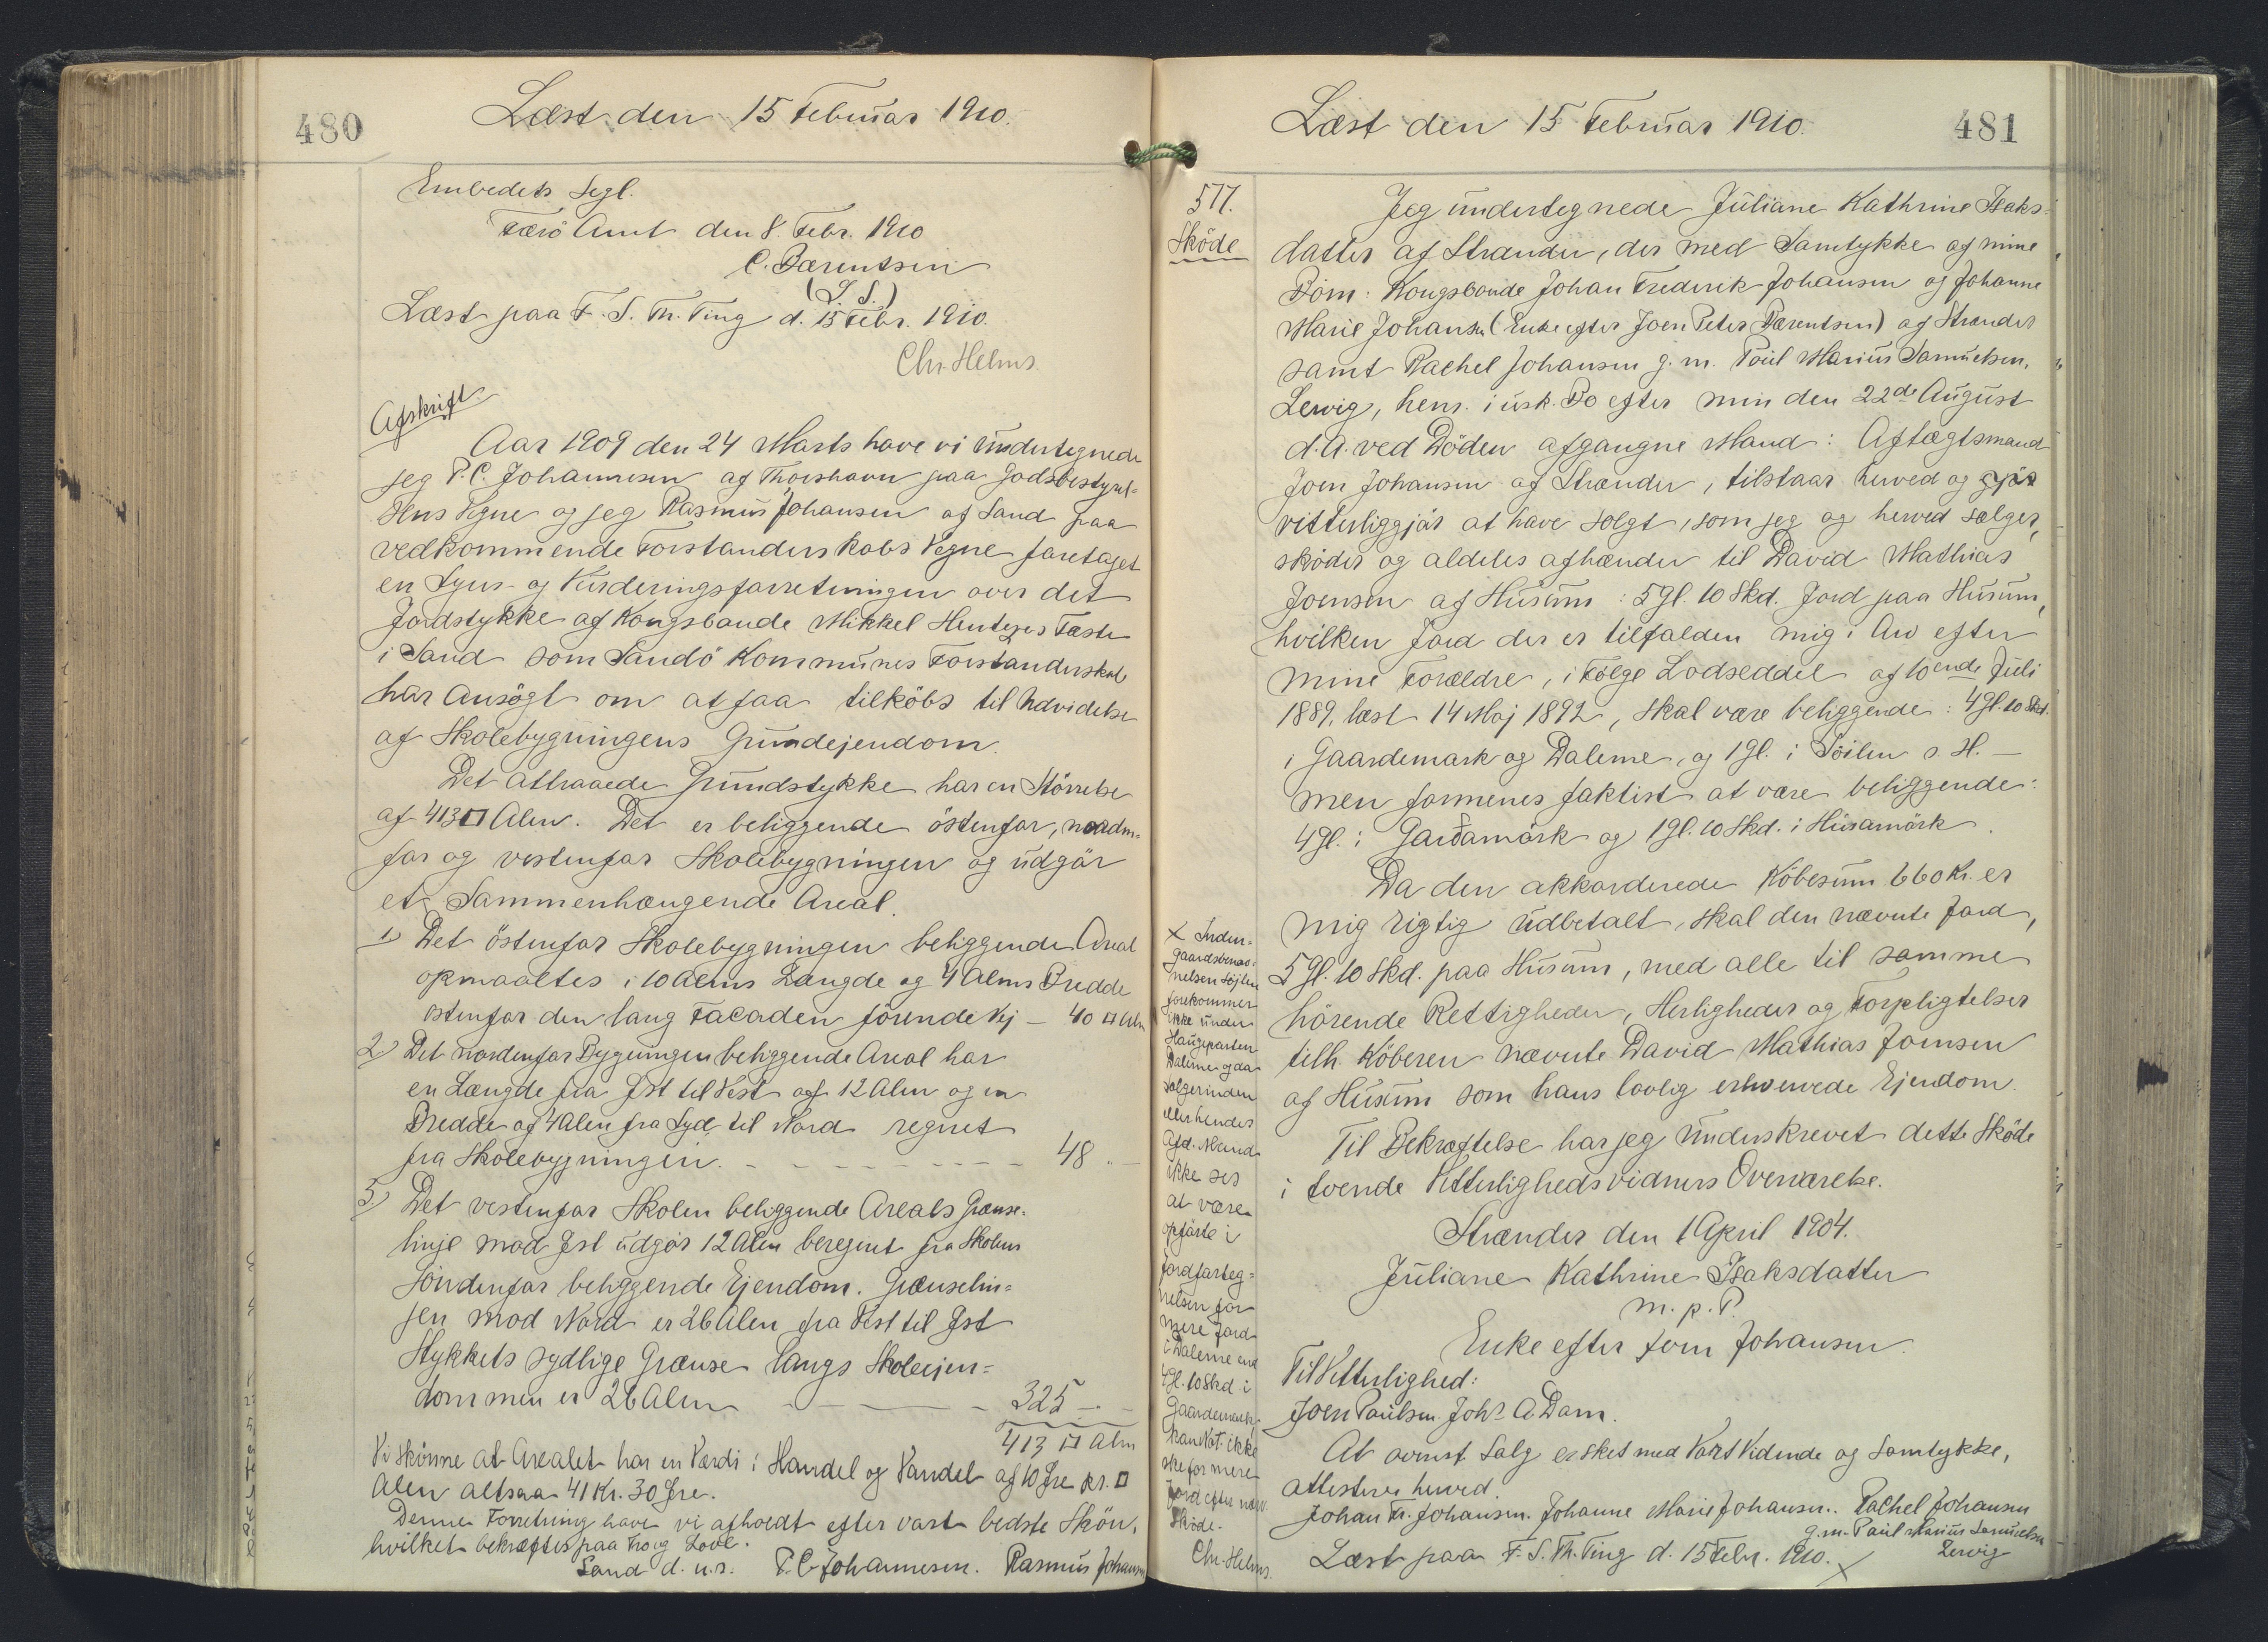 480
Læst den 15 Februar 1910.
Embedets Segl.
Færö Amt den 8. Febr. 1910
C. Bærentsen
(L. S.)
Læst paa F. S. Th. Ting d. 15 Febr. 1910.
Chr. Helms.
Afskrift
Aar 1909 den 24 Marts have vi undertegnede
jeg P. C. Johannesen af Thorshavn paa Godsbestyrel-
sens Vegne og jeg Rasmus Johansen af Sand paa
vedkommende Forstanderskabs Vegne foretaget
en Syns- og Vurderingsforretningen over det
Jordstykke af Kongsbonde Mikkel Hentzes Fæste
i Sand som Sandö Kommunes Forstanderskab
har ansögt om at faa tilköbs til Udvidelse
af Skolebygningens Grundejendom.
Det attraaede Grundstykke har en Störrelse
af 413 □ Alen. Det er beliggende östenfor, norden-
for og vestenfor Skolebygningen og udgör
et Sammenhængende Areal.
1) Det östenfor Skolebygningen beliggende Areal
opmaaltes i 10 Alens Længde og 4 Alens Bredde
östenfor den lang Facaden förende Vej — 40 □ Aln
2) Det nordenfor Bygningen beliggende Areal har
en Længde fra Öst til Vest af 12 Alen og en
Bredde af 4 Alen fra Syd til Nord regnet
fra Skolebygningen. - - - - - - - - 48 „ —
3) Det vestenfor Skolen beliggende Areals Grænse-
linje mod Öst udgör 12 Alen beregnet fra Skolens
söndenfor beliggende Ejendom. Grænselin=
jen mod Nord er 26 Alen fra Vest til Öst
Stykkets sydlige Grænse langs Skoleejen=
dommen er 26 Alen - - — - 325 — -
413 □ Alen
Vi skönne at Arealet har en Værdi i Handel og Vandel af 10 Öre pr. □
Alen altsaa 41 Kr. 30 Öre.
Denne Forretning have vi afholdt efter vort bedste Skön,
hvilket bekræftes paa Tro og Love.
Sand d. u. s. P. C. Johannesen. Rasmus Johansen
Læst den 15 Februar 1910.
481
577.
Sköde
Jeg undertegnede Juliane Kathrine Isaks-
datter af Strænder, der med Samtykke af mine
Börn: Kongsbonde Johan Frederik Johansen og Johanne
Marie Johansen (Enke efter Joen Peter Bærentsen) af Strænder
samt Rachel Johansen g. m. Poul Marius Samuelsen,
Lervig, hens. i usk. Bo efter min den 22de August
d. A. ved Döden afgangne Mand: Aftægtsmand
Joen Johansen af Strænder, tilstaar herved og gjör
vitterliggjör at have solgt, som jeg og herved sælger,
sköder og aldeles afhænder til David Mathias
Joensen af Husum: 5 Gl. 10 Skd. Jord paa Husum,
hvilken Jord der er tilfalden mig i Arv efter
mine Forældre, i Fölge Lodseddel af 10ende Juli
1889, læst 14 Maj 1892, skal være beliggende: 4 Gl. 10 Skd.
i Gaardemark og Dalerne, og 1 Gl. i Söilen s. H. —
men formenes faktist at være beliggende:
4 Gl. i Garðamörk og 1 Gl. 10 Skd. i Húsamörk.
Da den akkorderede Köbesum 660 Kr. er
mig rigtig udbetalt, skal den nævnte Jord,
5 Gl. 10 Skd. paa Husum, med alle til samme
hörende Rettigheder, Herligheder og Forpligtelser
tilh. Köberen nævnte David Mathias Joensen
af Husum som hans lovlig erhvervede Ejendom.
Til Bekræftelse har jeg underskrevet dette Sköde
i tvende Vitterlighedsvidners Overværelse.
Strænder den 1 April 1904.
Juliane Kathrine Isaksdatter
m. p. P.
Enke efter Joen Johansen.
Til Vitterlighed:
Joen Poulsen. Johs A Dam.
At ovenst. Salg er sket med Vort Vidende og Samtykke,
attesteres herved.
Johan Fr. Johansen. Johanne Marie Johansen. Rachel Johansen
g. m. Poul Marius Samuelsen
Lervig
Læst paa F. S. Th. Ting d. 15 Febr. 1910. ×
× Inden-
gaardsbenæv-
nelsen Söjlen
forekommer
ikke under
Haugeparten
Dalerne og da
Sælgerinden
eller hendes
Afd. Mand
ikke ses
at være
opförte i
Jordforteg-
nelsen for
mere Jord
i Dalerne end
4 Gl. 10 Skd i
Gaardemark,
kan Not. ikke
ske for mere
Jord efter nærv.
Sköde.
Chr. Helms.